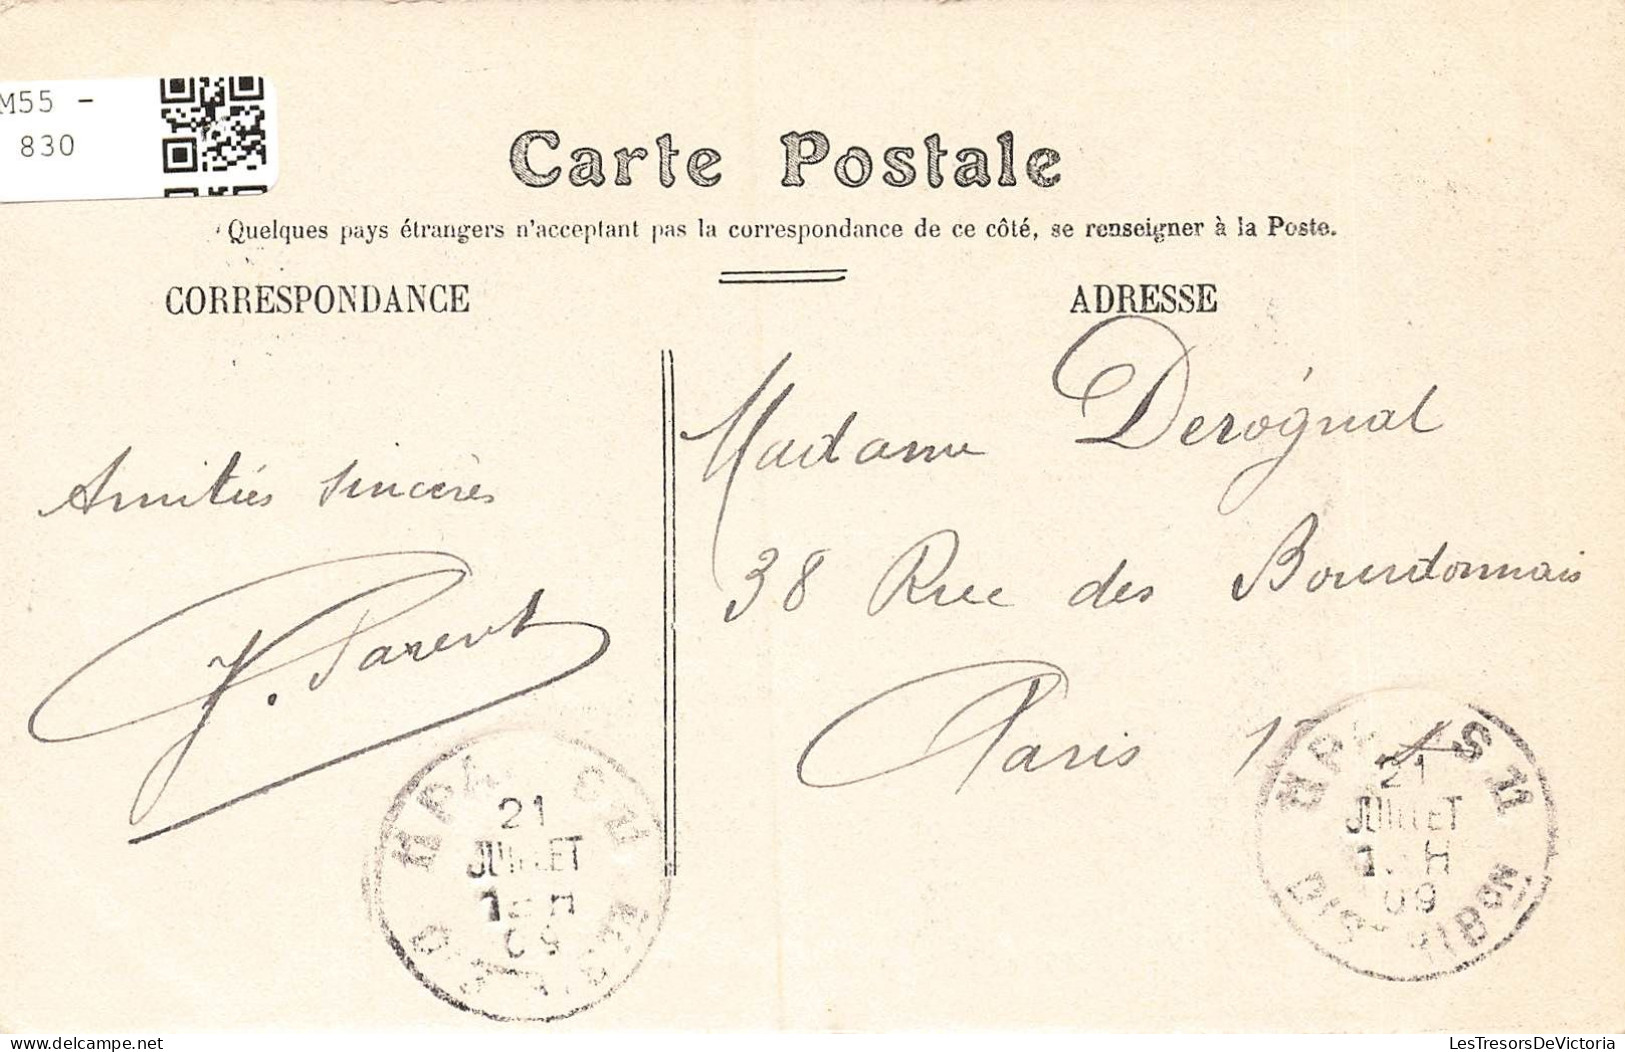 M55 -
830
Carte Postale
Quelques pays étrangers n'acceptant pas la correspondance de ce côté, se renseigner à la Poste.
CORRESPONDANCE
ADRESSE
Amitiés sincères
J. Parent
Madame Derognat
38 Rue des Bourdonnais
Paris
21
JUILLET
09
21
JUILLET
09
LesTresorsDeVictoria.com
LesTresorsDeVictoria